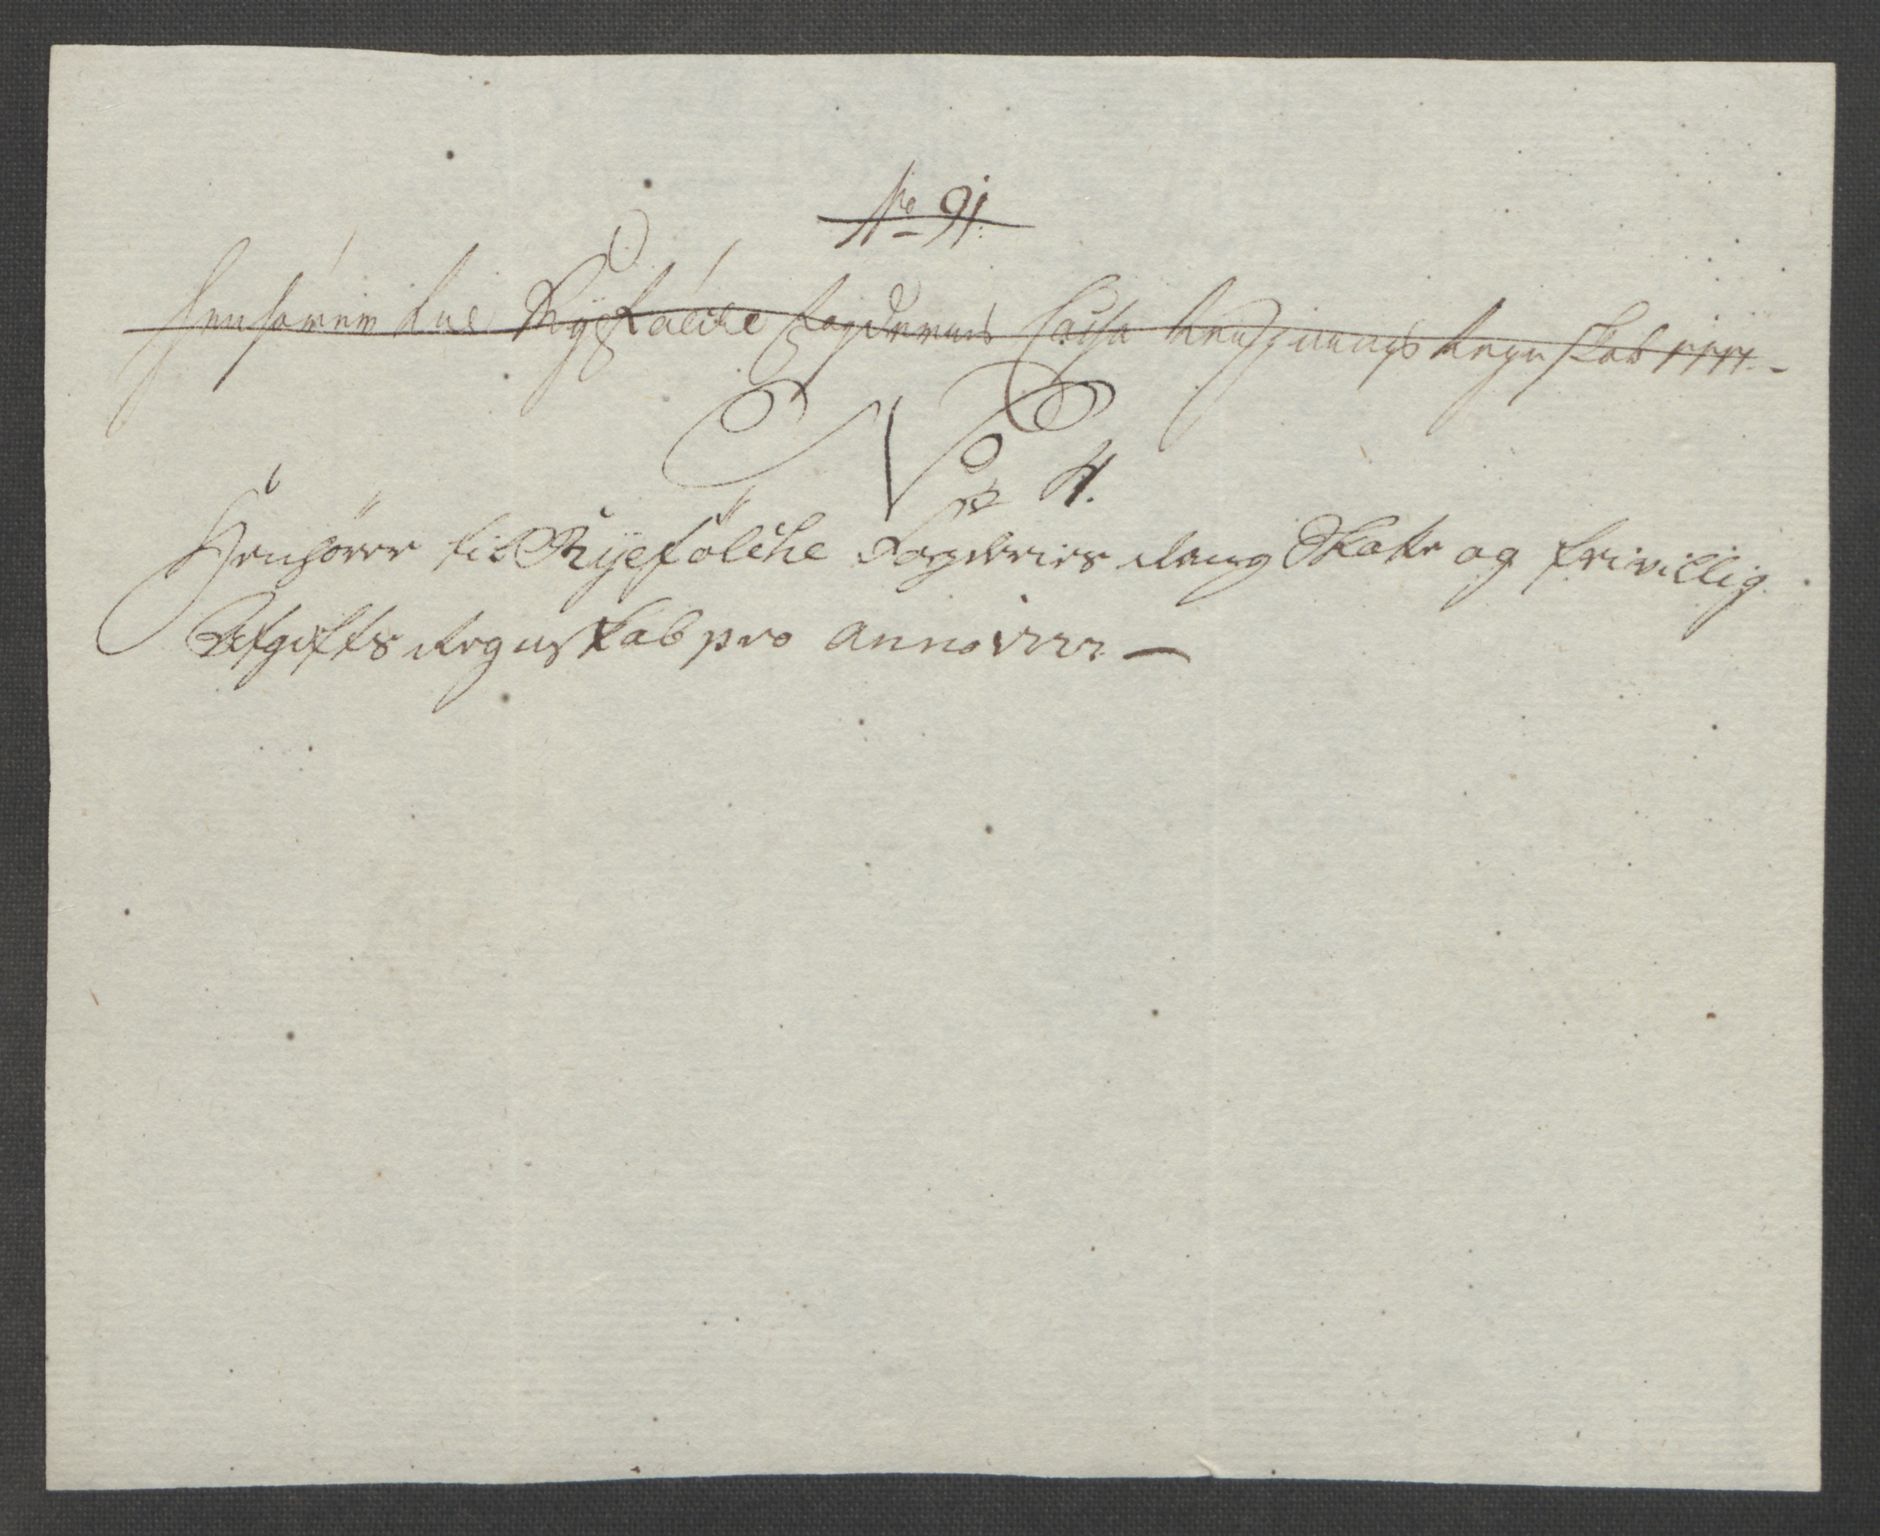 No 91.
Henhörer til Ryefölche Fogderies Cassa Regnskab 1777.
No 4.
Henhörer til Ryefölche Fogderies Rang Skatt og frivillig
Afgifts Regnskab pro anno 1777. —